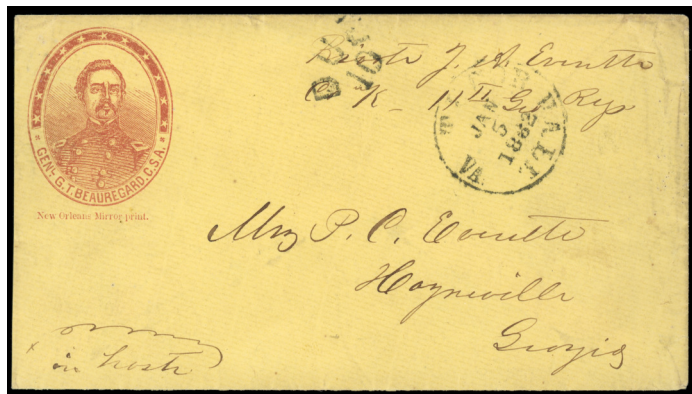 GENL. G.T. BEAUREGARD. C.S.A.
New Orleans Mirror print.
DUE
10
J. A. Everette
Co K - 11th Ga Rgs
JAN
5
1862
VA.
Mrs P. C. Everette
Hayneville
Georgia
in haste